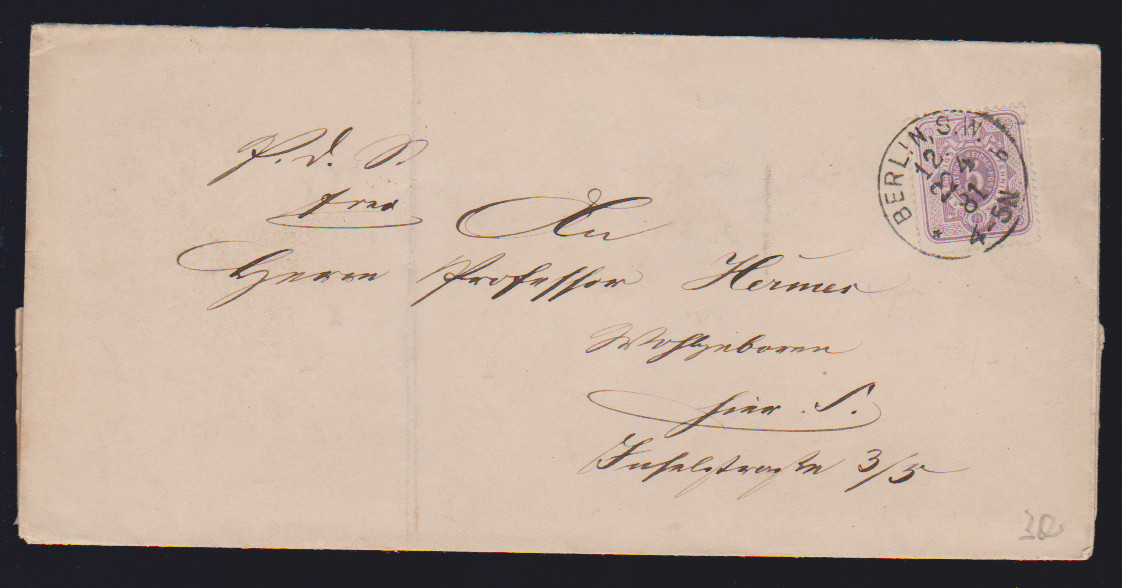 P. d. S.
frei
An
Herrn Professor Hermes
Wohlgeboren
hier S.
Inselstraße 3/5
BERLIN, S.W.
12.
22 4
81
4-5N
*
5
30